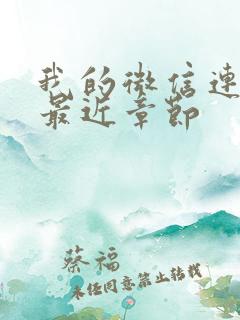 我的微信连
最近章节
蔡福
未经同意禁止转载